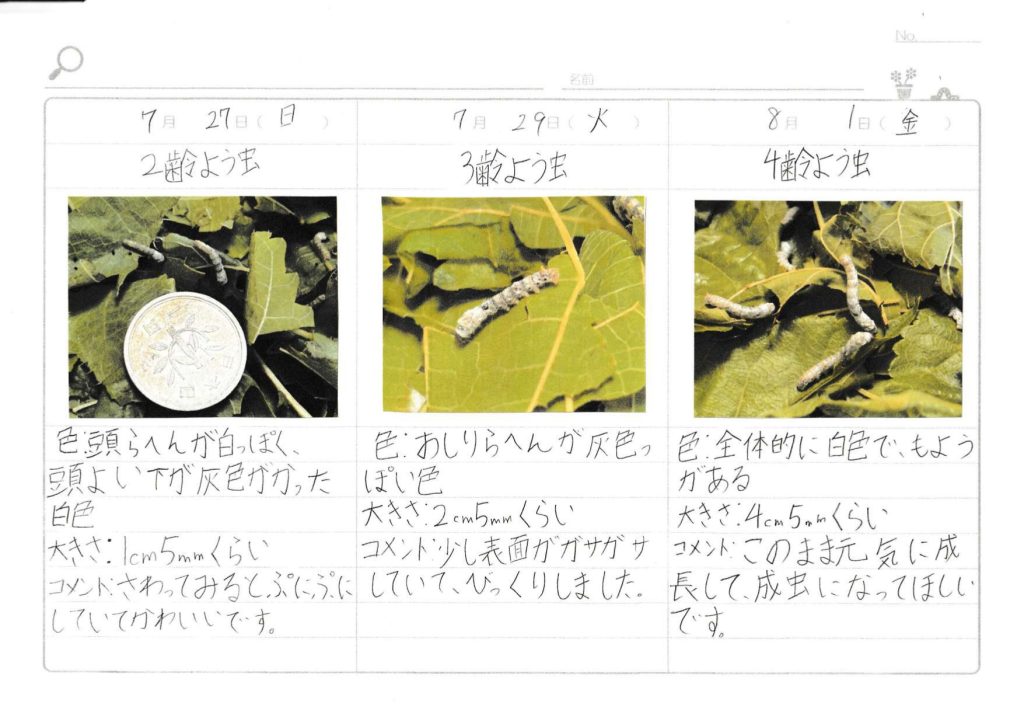 No.
名前
7月 27日(日)
2齢よう虫
色:頭らへんが白っぽく、
頭よい下が灰色ががった
白色
大きさ:1cm5mmくらい
コメント:さわってみると、ぷにぷに
していてかわいいです。
7月 29日(火)
3齢よう虫
色:おしりらへんが灰色っ
ぽい色
大きさ:2cm5mmくらい
コメント:少し表面がガサガサ
していて、びっくりしました。
8月 1日(金)
4齢よう虫
色:全体的に白色で、もよう
がある
大きさ:4cm5mmくらい
コメント:このまま元気に成
長して、成虫になってほしい
です。